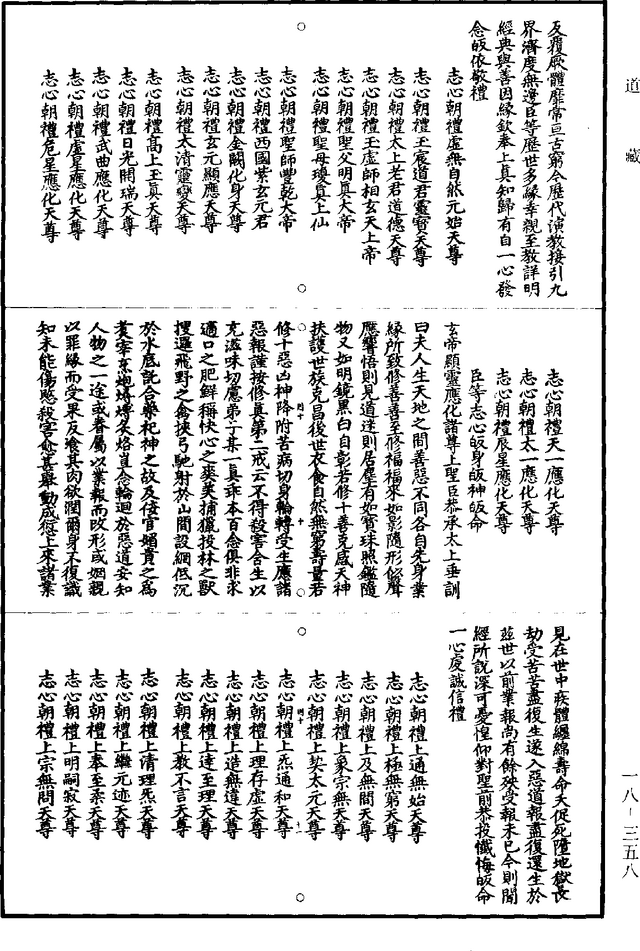 道藏
反覆厥體靡常亘古窮今歷代演教接引九
界濟度無邊臣等歷世多緣幸覩至教詳明
經典與善因緣欽奉上真知歸有自一心發
念皈依敬禮
志心朝禮虛無自然元始天尊
志心朝禮玉宸道君靈寶天尊
志心朝禮太上老君道德天尊
志心朝禮玉虛師相玄天上帝
志心朝禮聖父明真大帝
志心朝禮聖母瓊真上仙
志心朝禮聖師豐乾大帝
志心朝禮西國紫玄元君
志心朝禮金闕化身天尊
志心朝禮玄元顯應天尊
志心朝禮太清靈變天尊
志心朝禮高上玉真天尊
志心朝禮日光開瑞天尊
志心朝禮武曲應化天尊
志心朝禮虛星應化天尊
志心朝禮危星應化天尊
志心朝禮天一應化天尊
志心朝禮太一應化天尊
志心朝禮辰星應化天尊
臣等志心皈身皈神皈命
玄帝顯靈應化諸尊上聖臣恭承太上垂訓
曰夫人生天地之間善惡不同各自先身業
緣所致修善善至修福福來如影隨形似聲
應響悟則見道迷則居塵有如寶珠照鑑隨
物又如明鏡黑白自彰若修十善克感天神
扶護世族克昌後世衣食自然無窮壽量若
修十惡凶神降附苦病切身輪轉受生應諸
惡報謹按修真第二戒云不得殺害含生以
充滋味切慮弟子某一真乖本百念俱非求
適口之肥鮮稱快心之爽美捕獵投林之獸
搜邏飛野之禽挾弓馳射於山間設網低沉
於水底託合藥祀神之故及倿官媚貴之為
養宰烹炮煿炙烙豈念輪迴於惡道安知
人物之一途或眷屬以業報而改形或姻親
以罪緣而受果反飡其肉欲潤爾身不復識
知未能傷愍殺害愈甚舉動成愆上來諸業
見在世中疾體纏綿壽命夭促死墮地獄長
劫受苦苦盡復生遂入惡道報盡復還生於
茲世以前業報尚有餘殃受報未已今則聞
經所說深可憂惶仰對聖前恭投懺悔皈命
一心虔誠信禮
志心朝禮上通無始天尊
志心朝禮上極無窮天尊
志心朝禮上及無間天尊
志心朝禮上象宗無天尊
志心朝禮上契太元天尊
志心朝禮上炁通和天尊
志心朝禮上理存虛天尊
志心朝禮上造無違天尊
志心朝禮上達至理天尊
志心朝禮上教不言天尊
志心朝禮上清理炁天尊
志心朝禮上繼元迹天尊
志心朝禮上奉至柔天尊
志心朝禮上明嗣寂天尊
志心朝禮上宗無問天尊
一八－三五八